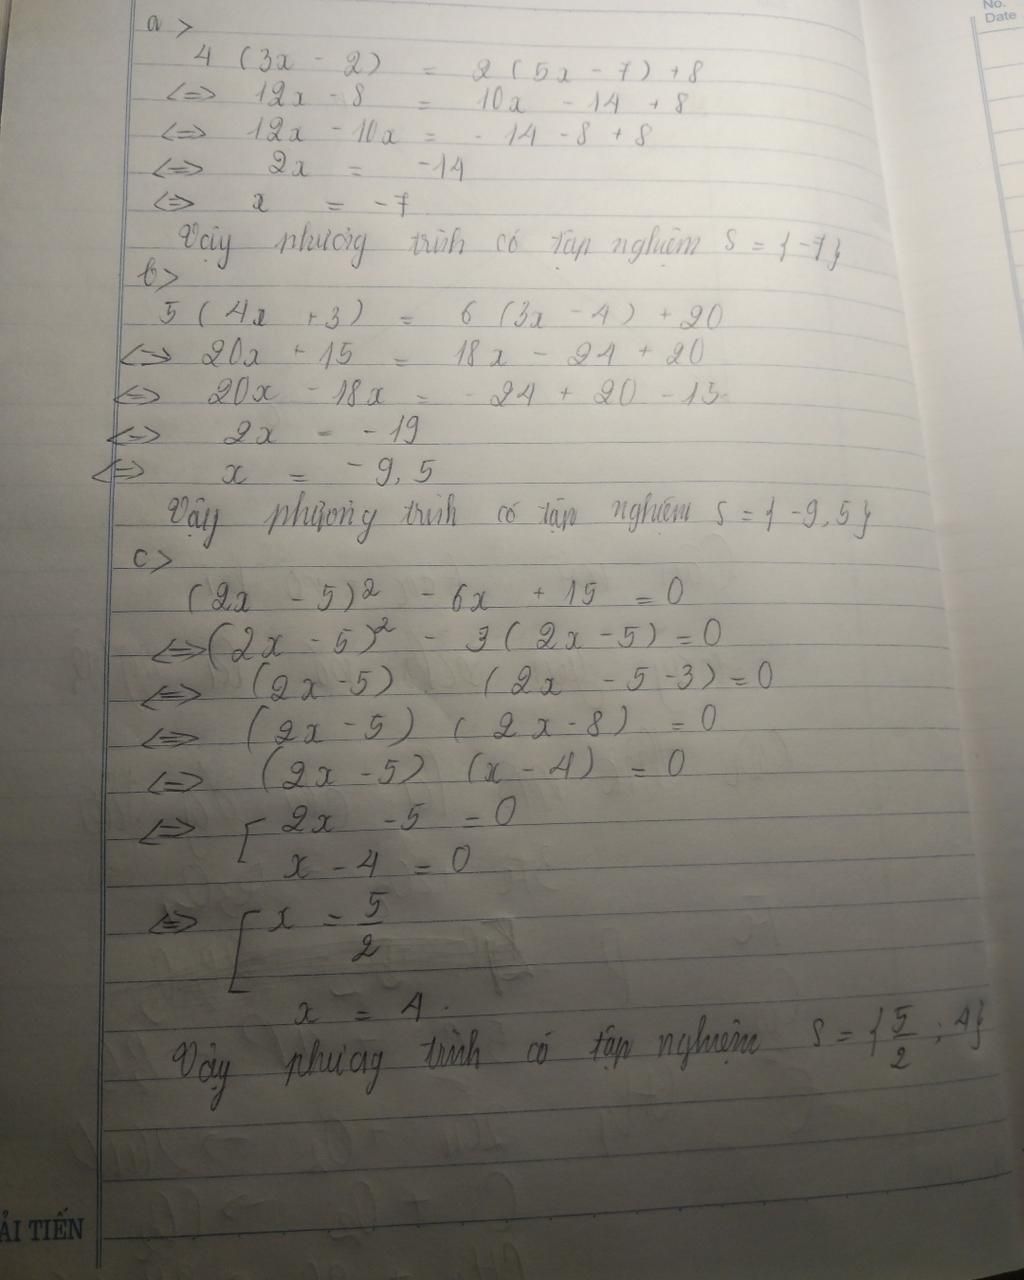 No.
Date
a >
4 (3x - 2) = 2 (5x - 7) + 8
<=> 12x - 8 = 10x - 14 + 8
<=> 12x - 10x = - 14 - 8 + 8
<=> 2x = -14
<=> x = -7
Vậy phương trình có tập nghiệm S = {-7}
b>
5 (4x + 3) = 6 (3x - 4) + 20
<=> 20x + 15 = 18x - 24 + 20
<=> 20x - 18x = - 24 + 20 - 15
<=> 2x = - 19
<=> x = - 9,5
Vậy phương trình có tập nghiệm S = { -9,5}
c>
(2x - 5)² - 6x + 15 = 0
<=> (2x - 5)² - 3 (2x - 5) = 0
<=> (2x - 5) (2x - 5 - 3) = 0
<=> (2x - 5) (2x - 8) = 0
<=> (2x - 5) (x - 4) = 0
<=> [ 2x - 5 = 0
x - 4 = 0
<=> [ x = 5/2
x = 4.
Vậy phương trình có tập nghiệm S = {5/2 ; 4}
ẢI TIẾN